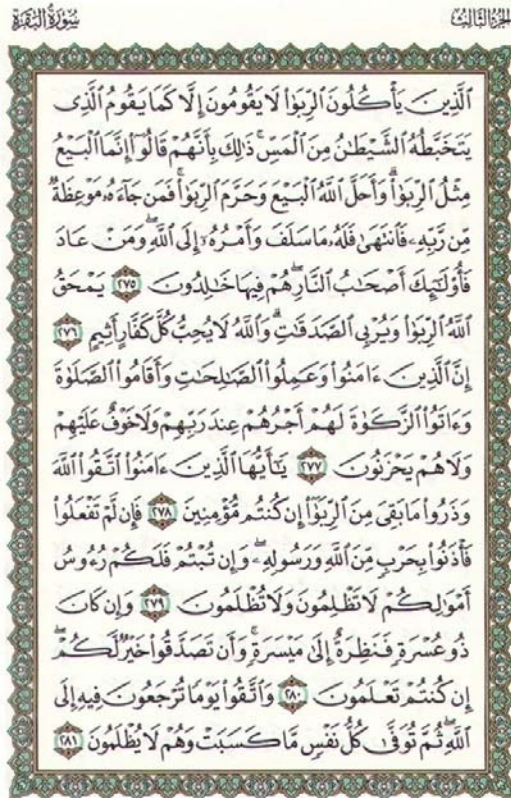 الجزء الثالث
سورة البقرة
ٱلَّذِينَ يَأۡكُلُونَ ٱلرِّبَوٰاْ لَا يَقُومُونَ إِلَّا كَمَا يَقُومُ ٱلَّذِي
يَتَخَبَّطُهُ ٱلشَّيۡطَٰنُ مِنَ ٱلۡمَسِّۚ ذَٰلِكَ بِأَنَّهُمۡ قَالُوٓاْ إِنَّمَا ٱلۡبَيۡعُ
مِثۡلُ ٱلرِّبَوٰاْۗ وَأَحَلَّ ٱللَّهُ ٱلۡبَيۡعَ وَحَرَّمَ ٱلرِّبَوٰاْۚ فَمَن جَآءَهُۥ مَوۡعِظَةٞ
مِّن رَّبِّهِۦ فَٱنتَهَىٰ فَلَهُۥ مَا سَلَفَ وَأَمۡرُهُۥٓ إِلَى ٱللَّهِۖ وَمَنۡ عَادَ
فَأُوْلَٰٓئِكَ أَصۡحَٰبُ ٱلنَّارِۖ هُمۡ فِيهَا خَٰلِدُونَ ٢٧٥ يَمۡحَقُ
ٱللَّهُ ٱلرِّبَوٰاْ وَيُرۡبِي ٱلصَّدَقَٰتِۗ وَٱللَّهُ لَا يُحِبُّ كُلَّ كَفَّارٍ أَثِيمٍ ٢٧٦
إِنَّ ٱلَّذِينَ ءَامَنُواْ وَعَمِلُواْ ٱلصَّٰلِحَٰتِ وَأَقَامُواْ ٱلصَّلَوٰةَ
وَءَاتَوُاْ ٱلزَّكَوٰةَ لَهُمۡ أَجۡرُهُمۡ عِندَ رَبِّهِمۡ وَلَا خَوۡفٌ عَلَيۡهِمۡ
وَلَا هُمۡ يَحۡزَنُونَ ٢٧٧ يَٰٓأَيُّهَا ٱلَّذِينَ ءَامَنُواْ ٱتَّقُواْ ٱللَّهَ
وَذَرُواْ مَا بَقِيَ مِنَ ٱلرِّبَوٰٓاْ إِن كُنتُم مُّؤۡمِنِينَ ٢٧٨ فَإِن لَّمۡ تَفۡعَلُواْ
فَأۡذَنُواْ بِحَرۡبٖ مِّنَ ٱللَّهِ وَرَسُولِهِۦۖ وَإِن تُبۡتُمۡ فَلَكُمۡ رُءُوسُ
أَمۡوَٰلِكُمۡ لَا تَظۡلِمُونَ وَلَا تُظۡلَمُونَ ٢٧٩ وَإِن كَانَ
ذُو عُسۡرَةٖ فَنَظِرَةٌ إِلَىٰ مَيۡسَرَةٖۚ وَأَن تَصَدَّقُواْ خَيۡرٞ لَّكُمۡۖ
إِن كُنتُمۡ تَعۡلَمُونَ ٢٨٠ وَٱتَّقُواْ يَوۡمٗا تُرۡجَعُونَ فِيهِ إِلَى
ٱللَّهِۖ ثُمَّ تُوَفَّىٰ كُلُّ نَفۡسٖ مَّا كَسَبَتۡ وَهُمۡ لَا يُظۡلَمُونَ ٢٨١